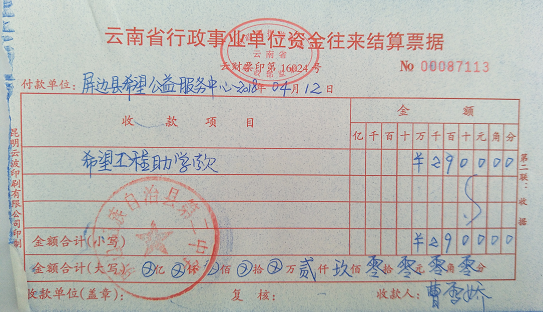 云南省行政事业单位资金往来结算票据
云财票印第16024号
No 00087113
付款单位:屏边县希望公益服务中心 2018年04月12日
收款项目 金额
亿千百十万千百十元角分
希望工程助学款 ¥290000
金额合计(小写) ¥290000
金额合计(大写) 亿 仟 佰 拾 万贰仟玖佰零拾零元零角零分
收款单位(盖章): 复核: 收款人:
第二联:收据
昆明云波印刷有限公司印制
自治县第二中